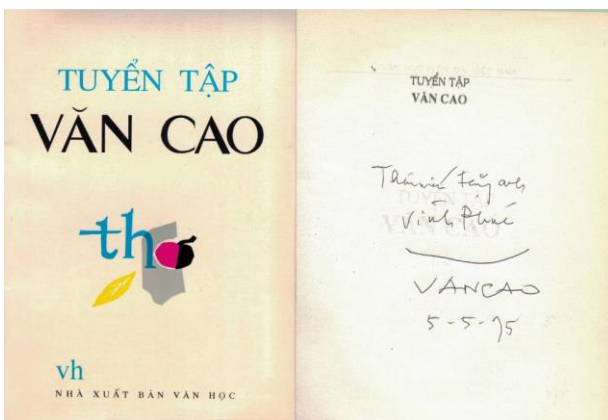 TUYỂN TẬP
VĂN CAO
thơ
vh
NHÀ XUẤT BẢN VĂN HỌC
TUYỂN TẬP
VĂN CAO
Thân anh
TUYỂN TẬP
Vĩnh Phúc
VĂN CAO
VANCAO
5-5-95